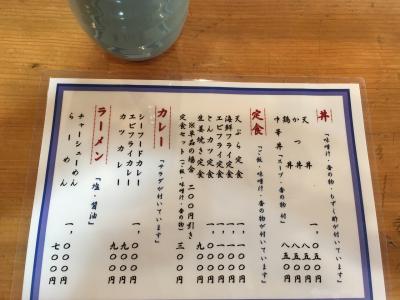 丼「味噌汁・香の物・もずく酢が付いています」
天丼 一、〇五〇円
かつ丼 八五〇円
鶏丼 八五〇円
中華丼「スープ・香の物が付いています」 八五〇円
定食「ご飯・味噌汁・香の物が付いています」
天ぷら定食 一、一〇〇円
海鮮フライ定食 一、一〇〇円
エビフライ定食 一、一〇〇円
とんカツ定食 一、〇〇〇円
生姜焼き定食 九〇〇円
※単品の場合 二〇〇円引き
定食セット(ご飯・味噌汁・香の物) 三〇〇円
カレー「サラダが付いています」
シーフードカレー 一、〇〇〇円
エビフライカレー 九〇〇円
カツカレー 九〇〇円
ラーメン「塩・醤油」
チャーシューめん 一、〇〇〇円
らーめん 七〇〇円